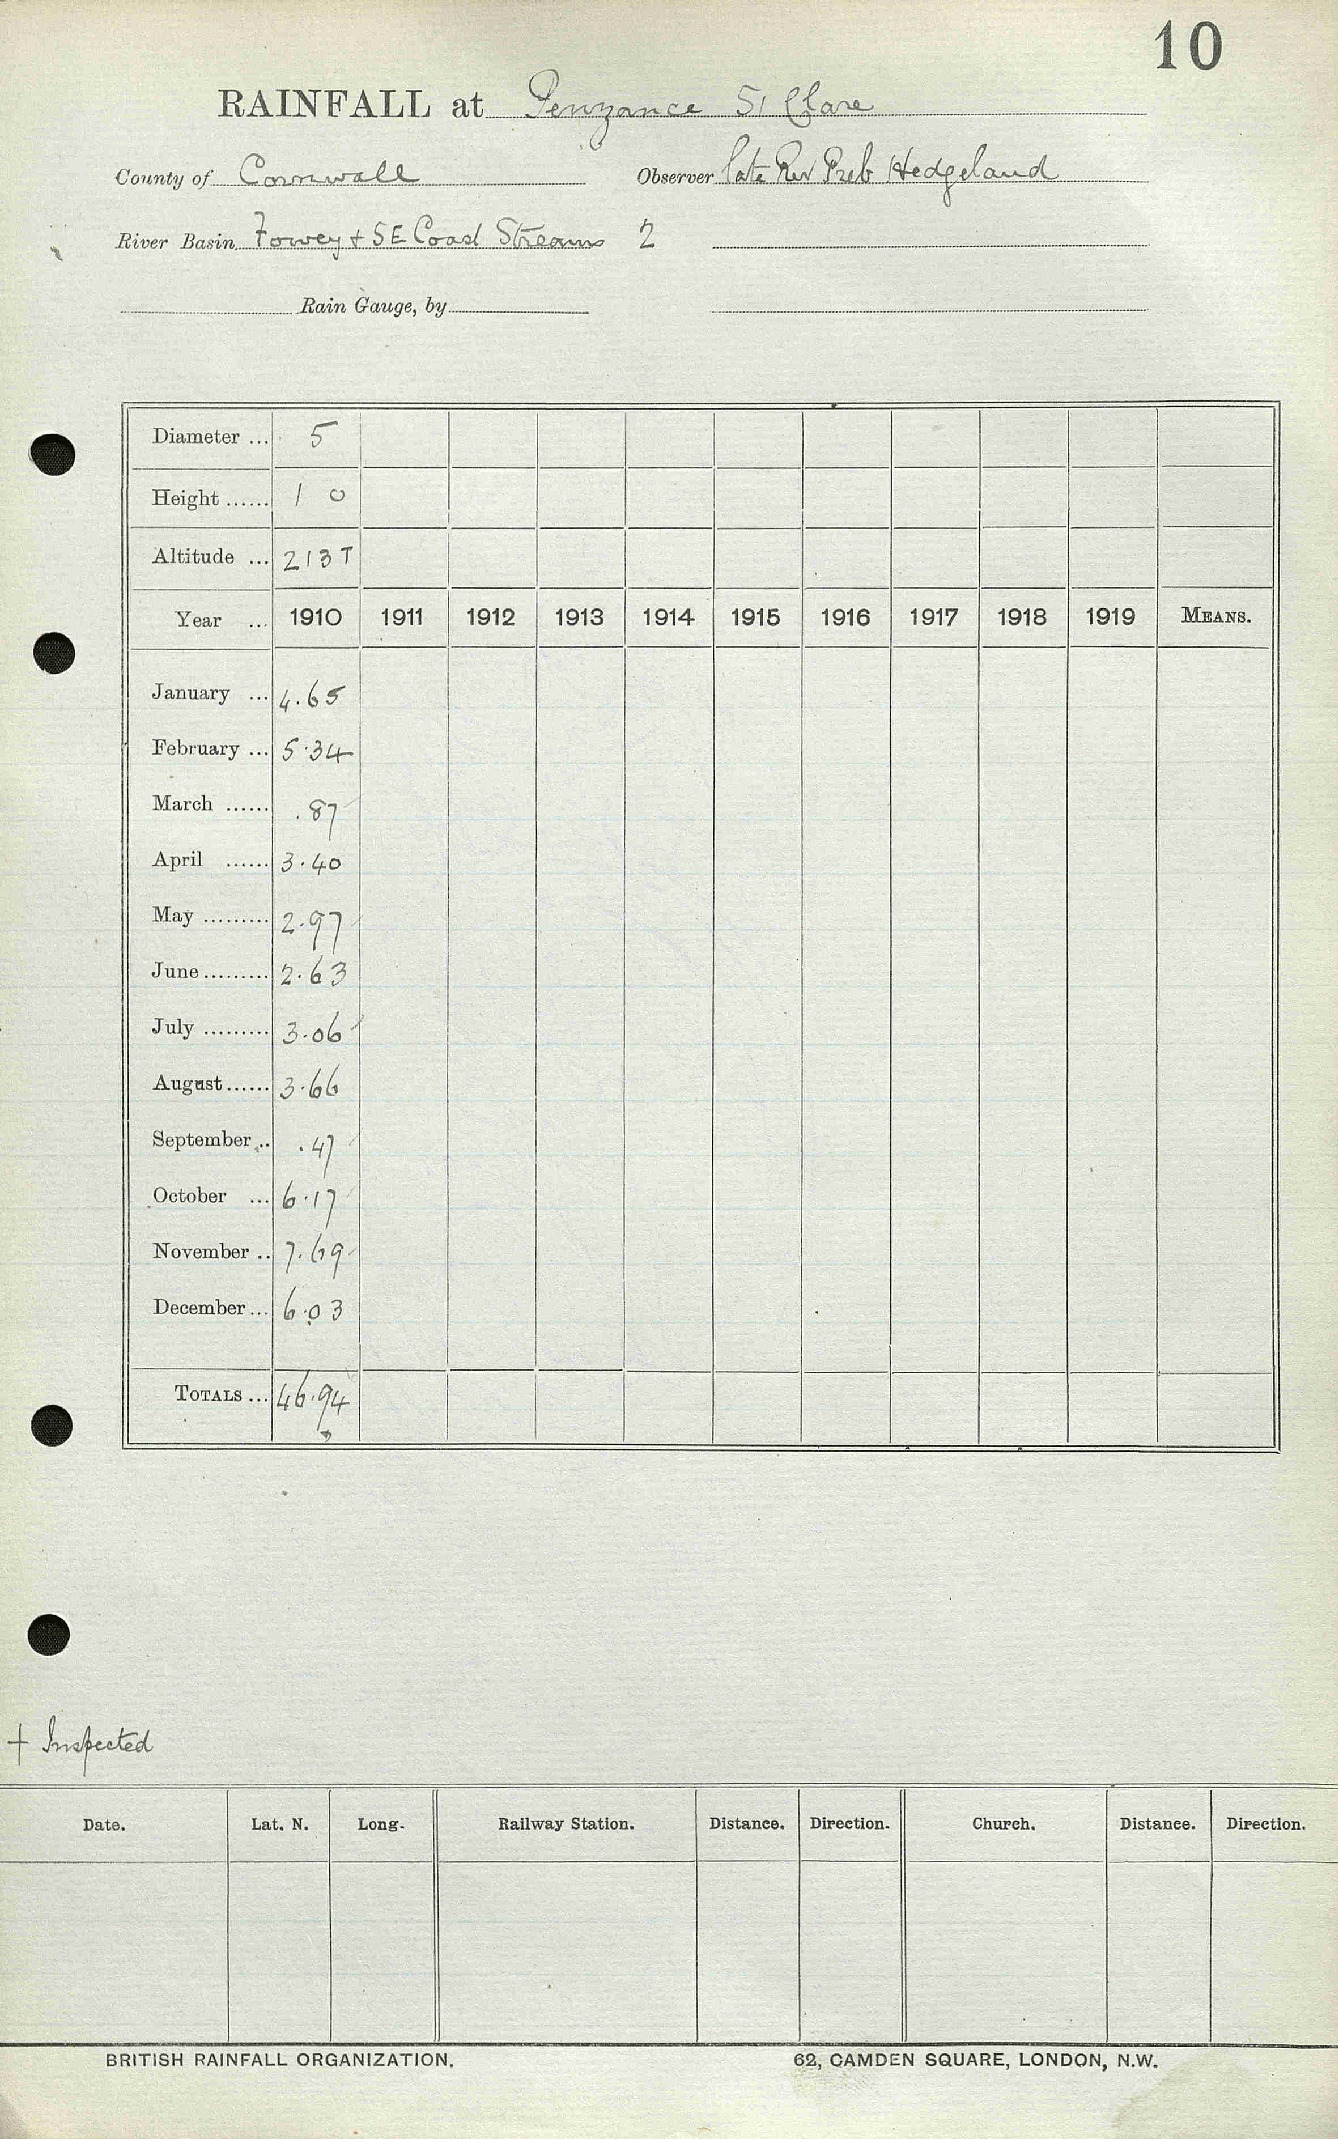 10
RAINFALL at Penzance St Clare
County of Cornwall Observer late Rev Preb Hedgeland
River Basin Fowey + SE Coast Streams 2
Rain Gauge, by
Diameter ... 5
Height ...... 1 0
Altitude ... 213 T
Year ... 1910 1911 1912 1913 1914 1915 1916 1917 1918 1919 MEANS.
January ... 4.65
February ... 5.34
March ...... .87
April ...... 3.40
May ......... 2.97
June ......... 2.63
July ......... 3.06
August ...... 3.66
September .. .47
October ... 6.17
November .. 7.69
December ... 6.03
TOTALS ... 46.94
+ Inspected
Date. Lat. N. Long. Railway Station. Distance. Direction. Church. Distance. Direction.
BRITISH RAINFALL ORGANIZATION. 62, CAMDEN SQUARE, LONDON, N.W.